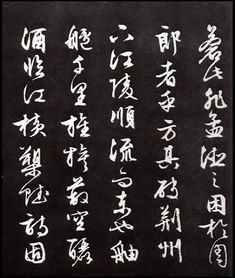 蒼此非孟德之困於周
郎者乎方其破荊州
下江陵順流而東也舳
艫千里旌旗蔽空釃
酒臨江橫槊賦詩固